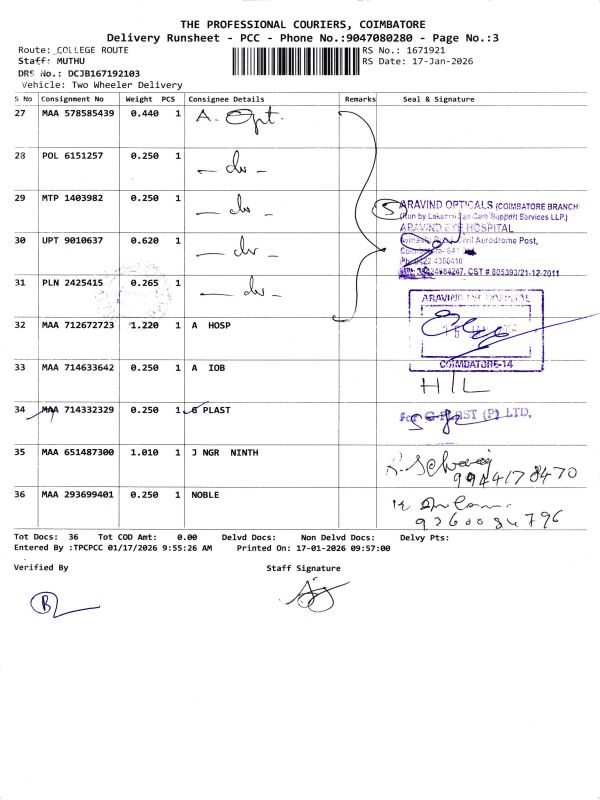 THE PROFESSIONAL COURIERS, COIMBATORE
Delivery Runsheet - PCC - Phone No.:9047080280 - Page No.:3
Route: COLLEGE ROUTE RS No.: 1671921
Staff: MUTHU RS Date: 17-Jan-2026
DRS No.: DCJB167192103
Vehicle: Two Wheeler Delivery
S No Consignment No Weight PCS Consignee Details Remarks Seal & Signature
27 MAA 578585439 0.440 1 A. Opt.
28 POL 6151257 0.250 1 — do —
29 MTP 1403982 0.250 1 — do —
30 UPT 9010637 0.620 1 — do —
31 PLN 2425415 0.265 1 — do —
5 ARAVIND OPTICALS (COIMBATORE BRANCH
(Run by Care Support Services LLP.)
ARAVIND EYE HOSPITAL
Civil Aerodrome Post,
CST # 805393/21-12-2011
32 MAA 712672723 1.220 1 A HOSP
ARAVIND EYE HOSPITAL
COIMBATORE-14
33 MAA 714633642 0.250 1 A IOB
H I L
34 MAA 714332329 0.250 1 G PLAST
For G-PLAST (P) LTD,
35 MAA 651487300 1.010 1 J NGR NINTH
9944178470
36 MAA 293699401 0.250 1 NOBLE
Tot Docs: 36 Tot COD Amt: 0.00 Delvd Docs: Non Delvd Docs: Delvy Pts:
Entered By :TPCPCC 01/17/2026 9:55:26 AM Printed On: 17-01-2026 09:57:00
Verified By Staff Signature